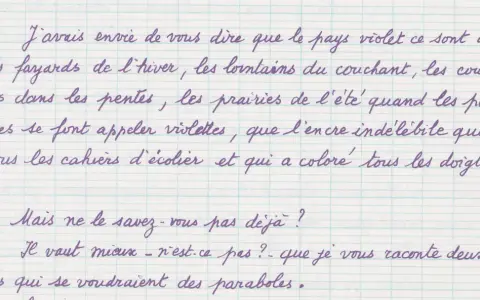 J'avais envie de vous dire que le pays violet ce sont
fayards de l'hiver, les lointains du couchant, les
dans les pentes, les prairies de l'été quand les
se font appeler violettes, que l'encre indélébile
les cahiers d'écolier et qui a coloré tous les
Mais ne le savez-vous pas déjà ?
Il vaut mieux - n'est-ce pas ? - que je vous raconte deux
qui se voudraient des paraboles.